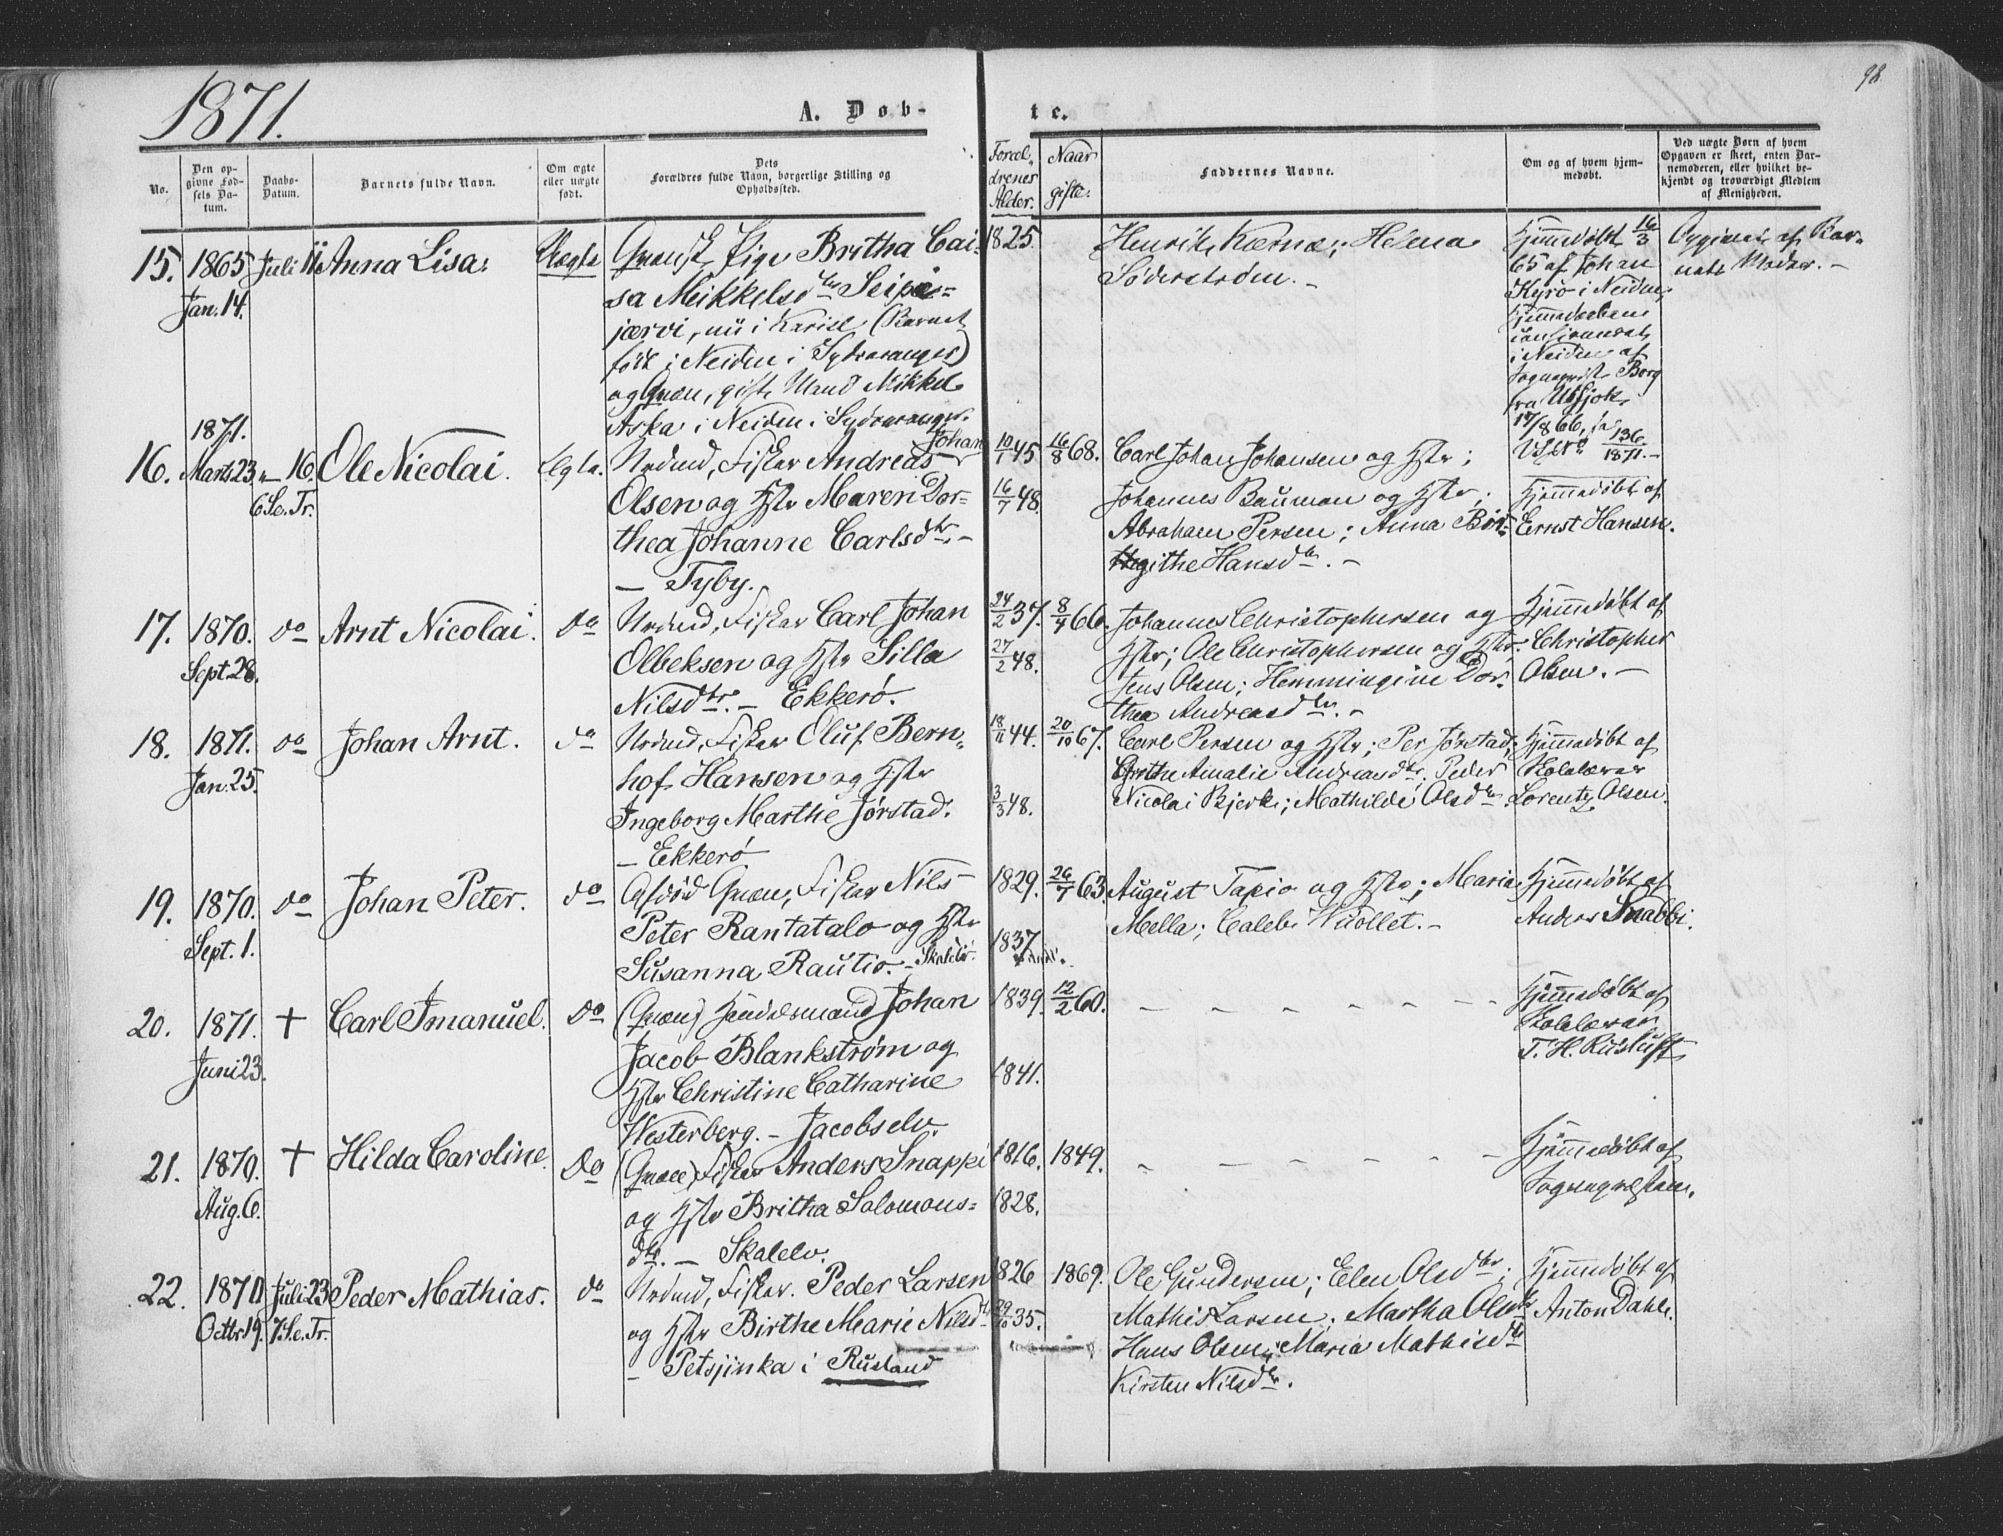 1871.
98
A. Døb-
te.
No.
Den op-
givne Fød-
sels Da-
tum.
Daabs-
Datum.
Barnets fulde Navn.
Om ægte
eller uægte
født.
Dets
Forældres fulde Navn, borgerlige Stilling og
Opholdssted.
Foræl-
drenes
Alder.
Naar
gifte.
Faddernes Navne.
Om og af hvem hjem-
medøbt.
Ved uægte Børn af hvem
Opgaven er skeet, enten Bar-
nemoderen, eller hvilket be-
kjendt og troværdigt Medlem
af Menigheden.
15. 1865 Juli Anna Lisa. Uægte
Jan. 14.
Qvænsk Pige Britha Cai-
sa Meikkelsdtr Seipæ-
jærvi, nu i Kariel (Barnet
født i Neiden i Sydvaranger)
og Qvæn, gift Mand Mikkel
Aska i Neiden i Sydvaranger.
1825.
Henrik Kærnæ; Helena
Söderstrøm. -
Hjemmedøbt 16/3
65 af Johan
Kyrö i Neiden,
Hjemmedaaben
i Neiden af
Sogneprest Borg
fra Utsjok
17/8 66,
136
1871. -
Opgivet af Bar-
nets Moder. -
1871.
16. Marts 23. - 16. Ole Nicolai. Ægte.
6 Se. Tr.
Nrdmd, Fisker Andreas Johan
Olsen og Hstr Maren Dor-
thea Johanne Carlsdtr. -
- Tyby.
10/1 45
16/7 48.
16/8 68.
Carl Johan Johansen og Hstr;
Johannes Bauman og Hstr;
Abraham Persen; Anna Bir-
githe Hansdtr. -
Hjemmedøbt af
Ernst Hansen.
17. 1870. do Arnt Nicolai. do
Sept. 28.
Nrdmd, Fisker Carl Johan
Olbeksen og Hstr Silla
Nilsdtr. - Ekkerø.
24/2 37.
27/2 48.
8/4 66.
Johannes Christophersen og
Hstr; Ole Christophersen og Hstr.
Jens Olsen; Hemmingine Dor-
thea Andreasdtr. -
Hjemmedøbt af
Christopher
Olsen. -
18. 1871. do Johan Arnt. do
Jan. 25.
Nrdmd, Fisker Oluf Bern-
hof Hansen og Hstr
Ingeborg Marthe Jørstad.
- Ekkerø
18/11 44.
3/3 48.
20/10 67.
Carl Persen og Hstr; Per Jørstad;
Grethe Amalie Andreasdtr. Peder
Nicolai Bjerk; Mathilde Olsdtr.
Hjemmedøbt af
Skolelærer
Lorentz Olsen.
19. 1870. do Johan Peter. do
Sept. 1.
Afdød Qvæn, Fisker Nils
Peter Rantatalo og Hstr
Susanna Rautio. - Skalelv.
1829.
1837
26/7 63.
August Tapio og Hstr; Maria
Mella; Caleb Wuollet. -
Hjemmedøbt af
Anders Snabbi.
20. 1871. + Carl Imanuel. do
Juni 23.
(Qvæn) Handelsmand Johan
Jacob Blankstrøm og
Hstr Christine Catharine
Westerberg. - Jacobselv.
1839.
1841.
12/2 60.
- - - - - - -
Hjemmedøbt af
Skolelærer
T. H. Rusluft
21. 1870. + Hilda Caroline. do
Aug. 6.
(Qvæn) Fisker Anders Snappi
og Hstr Britha Salomons-
dtr. - Skalelv.
1816.
1828.
1849.
- - - - - - -
Hjemmedøbt af
Sognepræsten.
22. 1870 Juli 23 Peder Mathias. do
Octbr 19. 7. Se. Tr.
Nrdmd, Fisker. Peder Larsen
og Hstr Birthe Marie Nilsdtr
- Petsjinka i Rusland
1826
29/10 35.
1869.
Ole Gundersen; Elen Olsdtr;
Mathis Larsen; Martha Olsdtr
Hans Olsen; Maria Mathisdtr
Kirsten Nilsdtr.
Hjemmedøbt af
Anton Dahl.